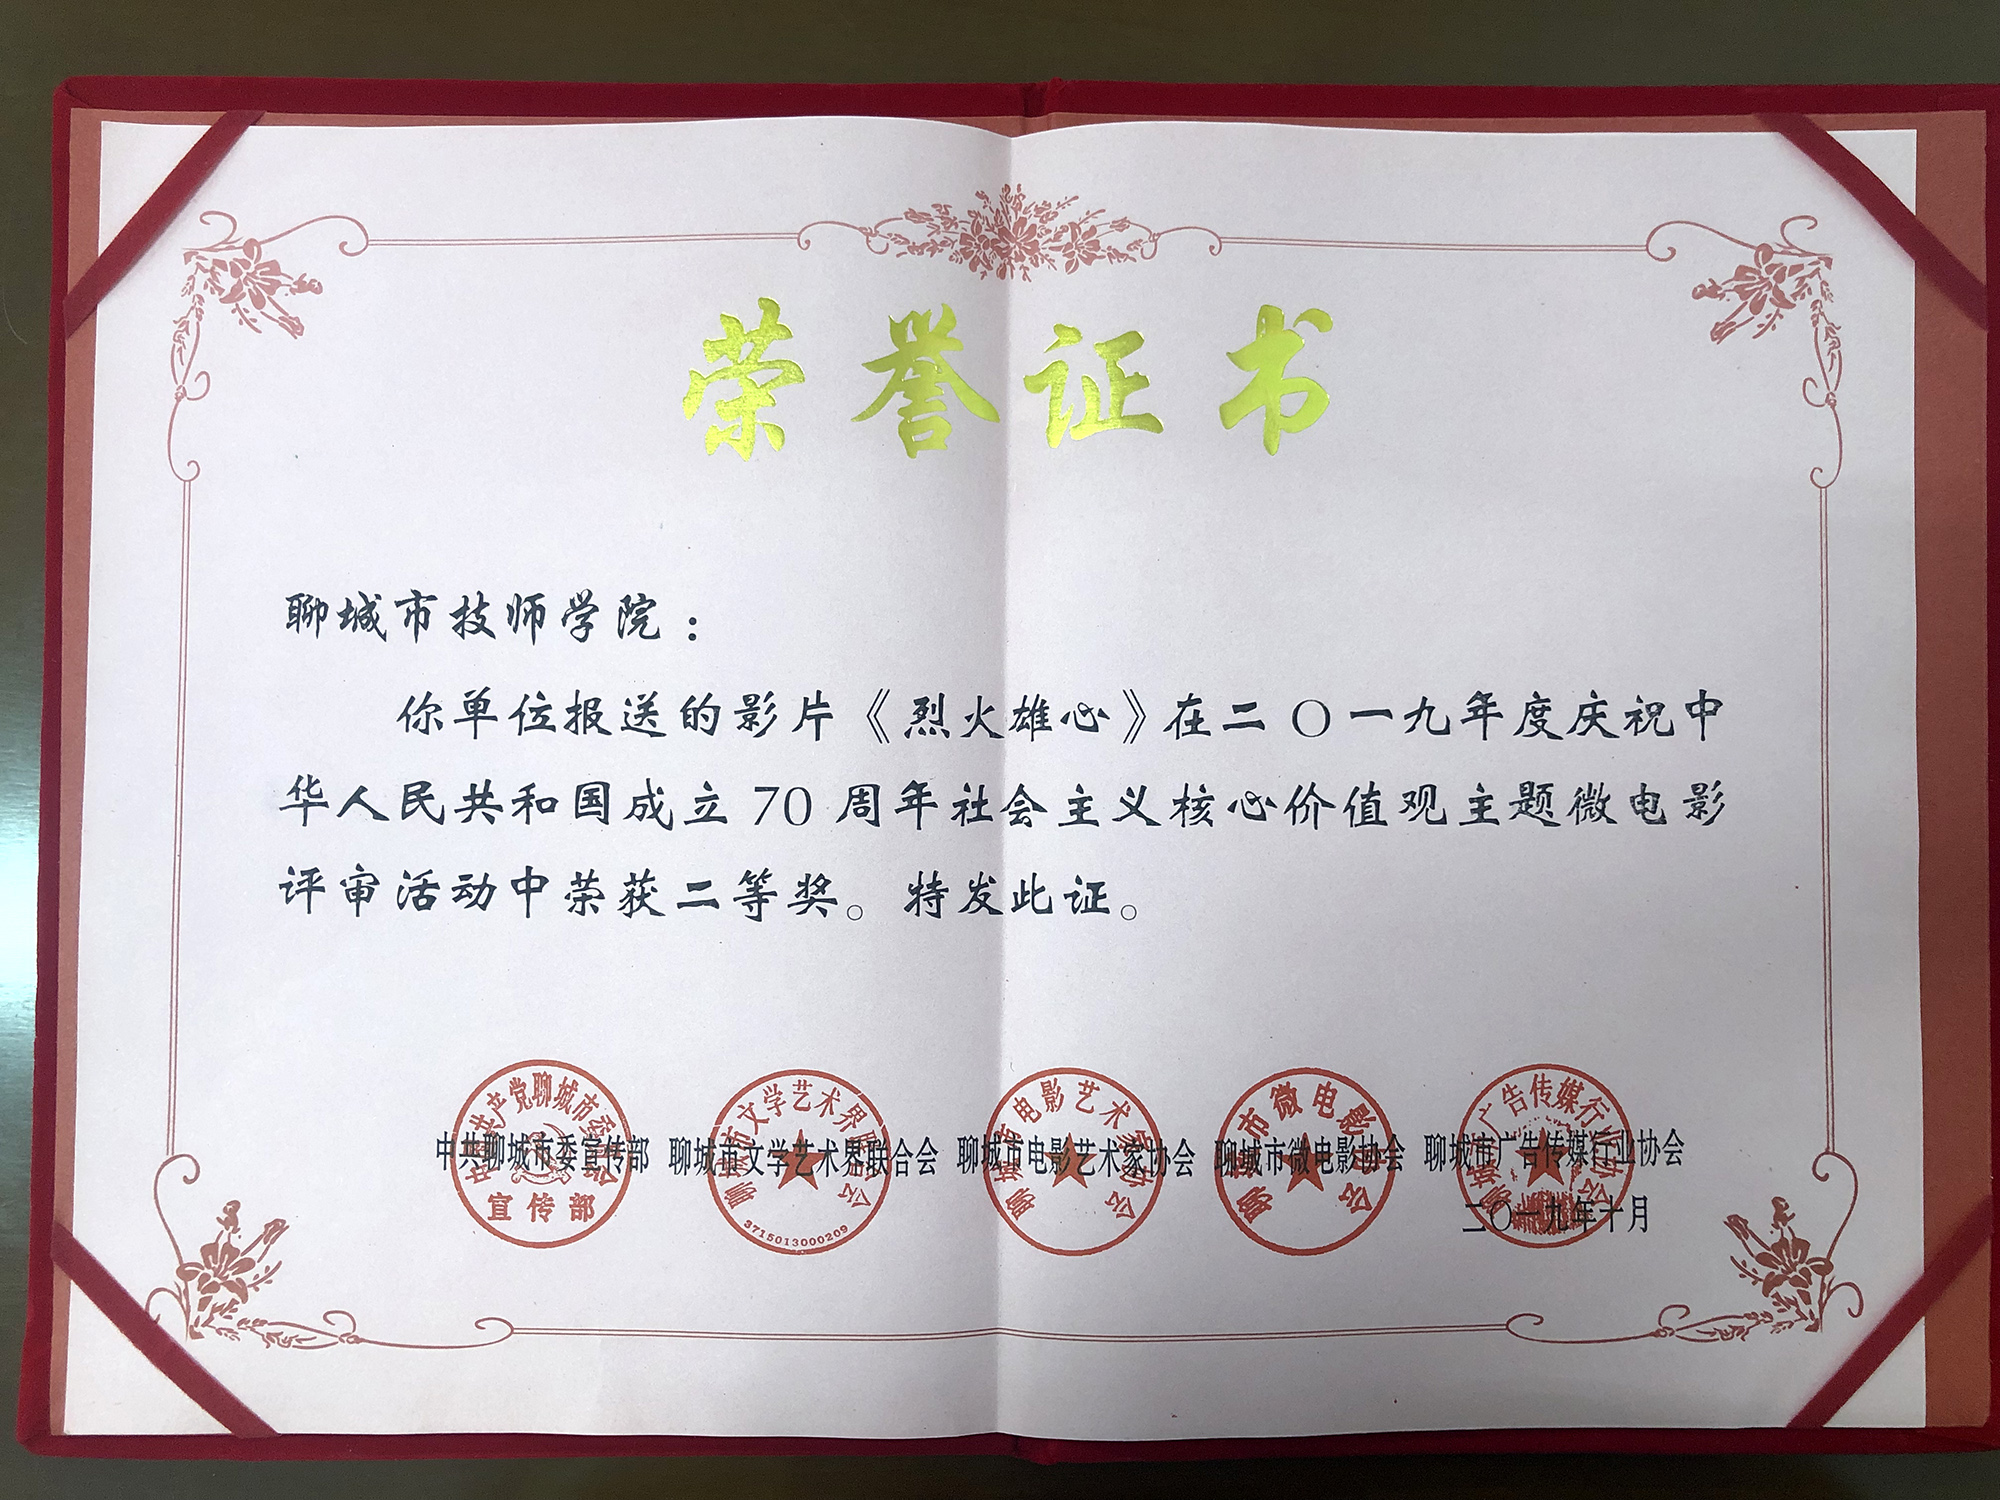 荣誉证书
聊城市技师学院：
你单位报送的影片《烈火雄心》在二〇一九年度庆祝中
华人民共和国成立70周年社会主义核心价值观主题微电影
评审活动中荣获二等奖。特发此证。
中共聊城市委宣传部 聊城市文学艺术界联合会 聊城市电影艺术家协会 聊城市微电影协会 聊城市广告传媒行业协会
二〇一九年十月
中国共产党聊城市委员会
宣传部
聊城市文学艺术界联合会
3715013000209
聊城市电影艺术家协会
聊城市微电影协会
聊城市广告传媒行业协会